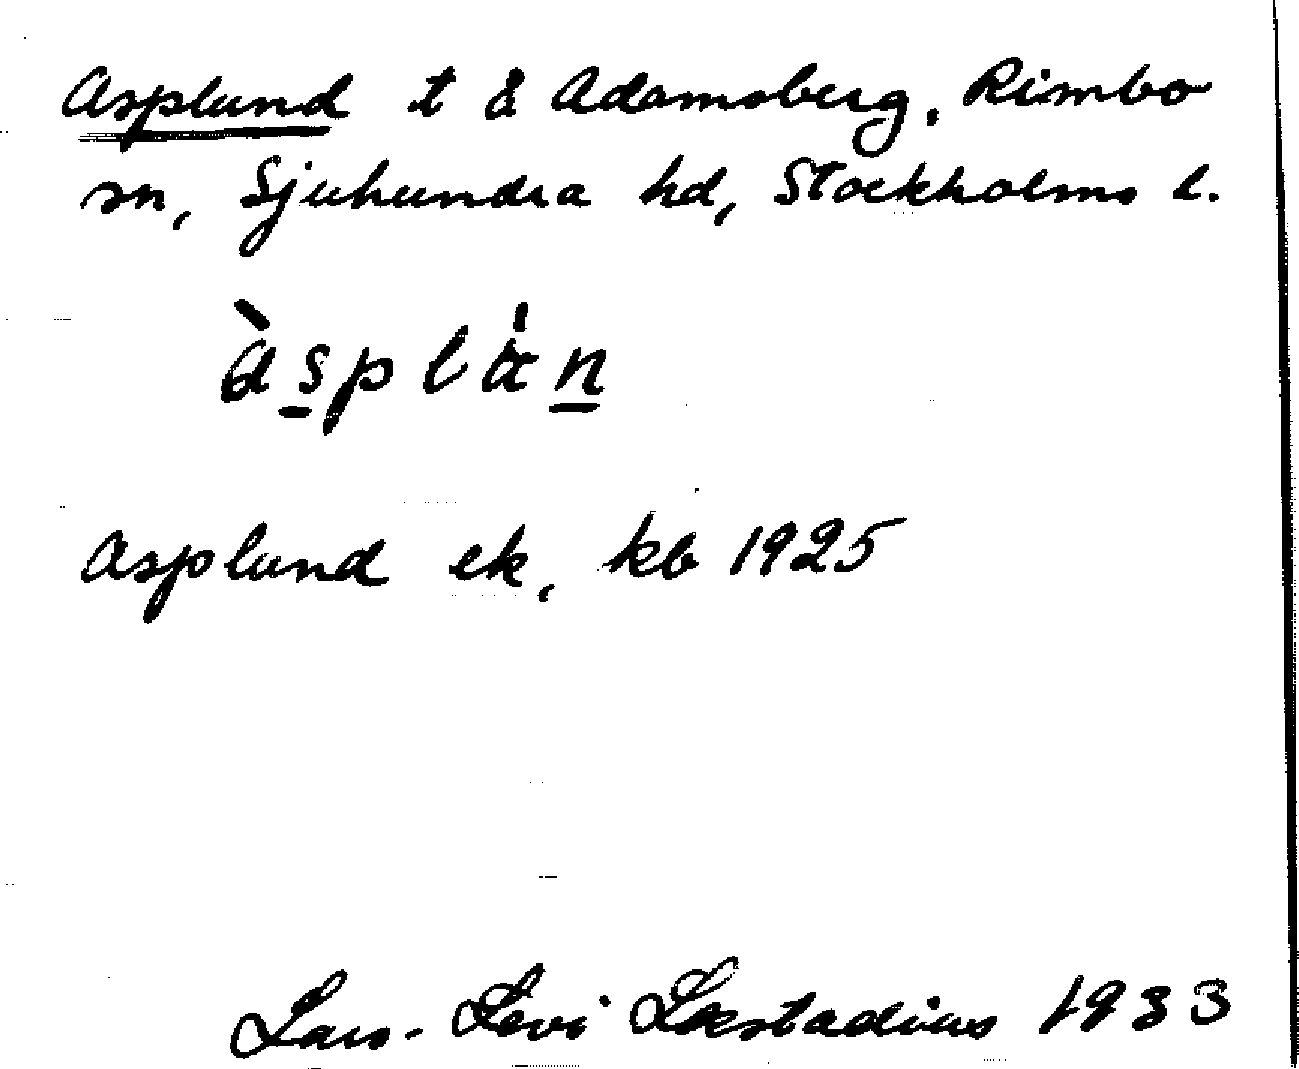 Asplund t å Adamsberg, Rimbo
sn, Sjuhundra hd, Stockholms l.
àsplán
Asplund ek, kb 1925
Lars-Levi Læstadius 1933